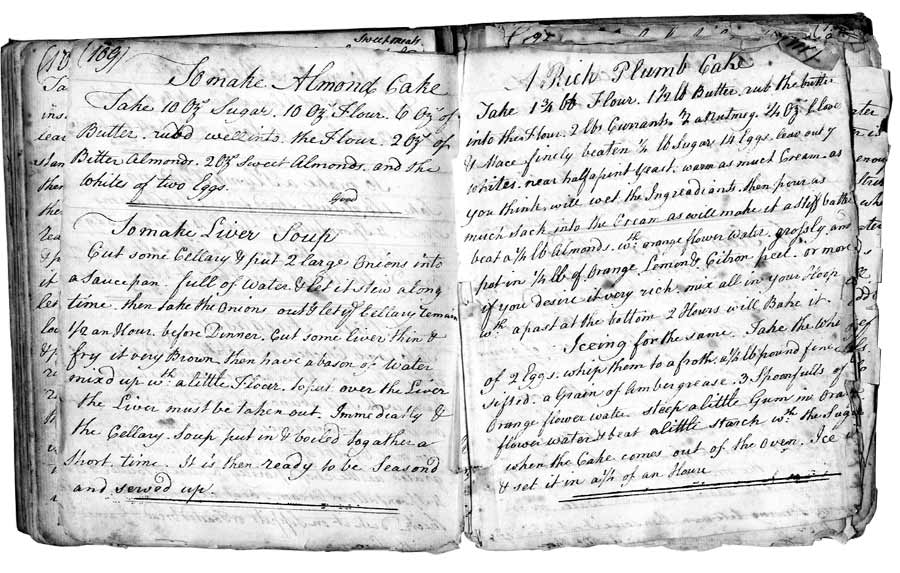 Sweetmeats
(109)
To make Almond Cake
Take 10 Ozs Sugar. 10 Ozs Flour. 6 Ozs of
Butter. rub'd well into the Flour. 2 Ozs of
Bitter Almonds. 2 Ozs Sweet Almonds. and the
Whites of two Eggs.
Good
To make Liver Soup
Cut some Cellary & put 2 large Onions into
a Saucepan full of Water & let it stew a long
time. then take the Onions out & let ye Cellary remain
1/2 an Hour. before Dinner. Cut some liver thin &
fry it very Brown then have a bason of Water
mix'd up wth a little Flour. to put over the Liver
the Liver must be taken out Immediatly &
the Cellary soup put in & boiled together a
Short time. It is then ready to be Season'd
and served up.
A Rich Plumb Cake
Take 1 1/4 lb Flour. 1 1/2 lb Butter. rub the butter
into the Flour. 2 lbs Currants. 1/2 a Nutmeg. 1/4 Oz Clove
& Mace finely beaten 1/4 lb Sugar 14 Eggs. leave out 4
Whites. near half a pint Yeast. warm as much Cream as
you think will wet the Ingreadiants. then pour as
much Sack into the Cream as will make it a stiff batter
beat a 1/2 lb Almonds. wth orange flower Water grossly and
put in 1/4 lb of Orange Lemon & Citron peel. or more
if you desire it very rich. mix all in your Hoop
wth a past at the bottom 2 Hours will Bake it.
Iceing for the same. Take the Whi
of 2 Eggs. whip them to a froth. a 1/4 lb pound fine
sifted. a Grain of Ambergrease. 3 Spoonfulls of
Orange flower water steep a little Gum in Ora
flower water & beat a little starch wth the Sugar
when the Cake comes out of the Oven. Ice
& set it in a 1/4 of an Hour